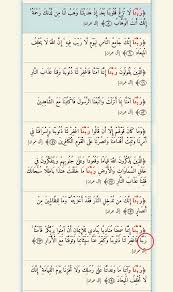 ﴿رَبَّنَا لَا تُزِغْ قُلُوبَنَا بَعْدَ إِذْ هَدَيْتَنَا وَهَبْ لَنَا مِن لَّدُنكَ رَحْمَةً
إِنَّكَ أَنتَ الْوَهَّابُ﴾ [آل عمران]
﴿رَبَّنَا إِنَّكَ جَامِعُ النَّاسِ لِيَوْمٍ لَّا رَيْبَ فِيهِ إِنَّ اللَّهَ لَا يُخْلِفُ
الْمِيعَادَ﴾ [آل عمران]
﴿الَّذِينَ يَقُولُونَ رَبَّنَا إِنَّنَا آمَنَّا فَاغْفِرْ لَنَا ذُنُوبَنَا وَقِنَا عَذَابَ النَّارِ﴾
[آل عمران]
﴿رَبَّنَا آمَنَّا بِمَا أَنزَلْتَ وَاتَّبَعْنَا الرَّسُولَ فَاكْتُبْنَا مَعَ الشَّاهِدِينَ﴾
[آل عمران]
﴿وَمَا كَانَ قَوْلَهُمْ إِلَّا أَن قَالُوا رَبَّنَا اغْفِرْ لَنَا ذُنُوبَنَا وَإِسْرَافَنَا فِي
أَمْرِنَا وَثَبِّتْ أَقْدَامَنَا وَانصُرْنَا عَلَى الْقَوْمِ الْكَافِرِينَ﴾ [آل عمران]
﴿الَّذِينَ يَذْكُرُونَ اللَّهَ قِيَامًا وَقُعُودًا وَعَلَىٰ جُنُوبِهِمْ وَيَتَفَكَّرُونَ فِي
خَلْقِ السَّمَاوَاتِ وَالْأَرْضِ رَبَّنَا مَا خَلَقْتَ هَٰذَا بَاطِلًا سُبْحَانَكَ
فَقِنَا عَذَابَ النَّارِ﴾ [آل عمران]
﴿رَبَّنَا إِنَّكَ مَن تُدْخِلِ النَّارَ فَقَدْ أَخْزَيْتَهُ وَمَا لِلظَّالِمِينَ مِنْ
أَنصَارٍ﴾ [آل عمران]
﴿رَّبَّنَا إِنَّنَا سَمِعْنَا مُنَادِيًا يُنَادِي لِلْإِيمَانِ أَنْ آمِنُوا بِرَبِّكُمْ فَآمَنَّا
رَبَّنَا فَاغْفِرْ لَنَا ذُنُوبَنَا وَكَفِّرْ عَنَّا سَيِّئَاتِنَا وَتَوَفَّنَا مَعَ الْأَبْرَارِ﴾
[آل عمران]
﴿رَبَّنَا وَآتِنَا مَا وَعَدتَّنَا عَلَىٰ رُسُلِكَ وَلَا تُخْزِنَا يَوْمَ الْقِيَامَةِ إِنَّكَ
لَا تُخْلِفُ الْمِيعَادَ﴾ [آل عمران]